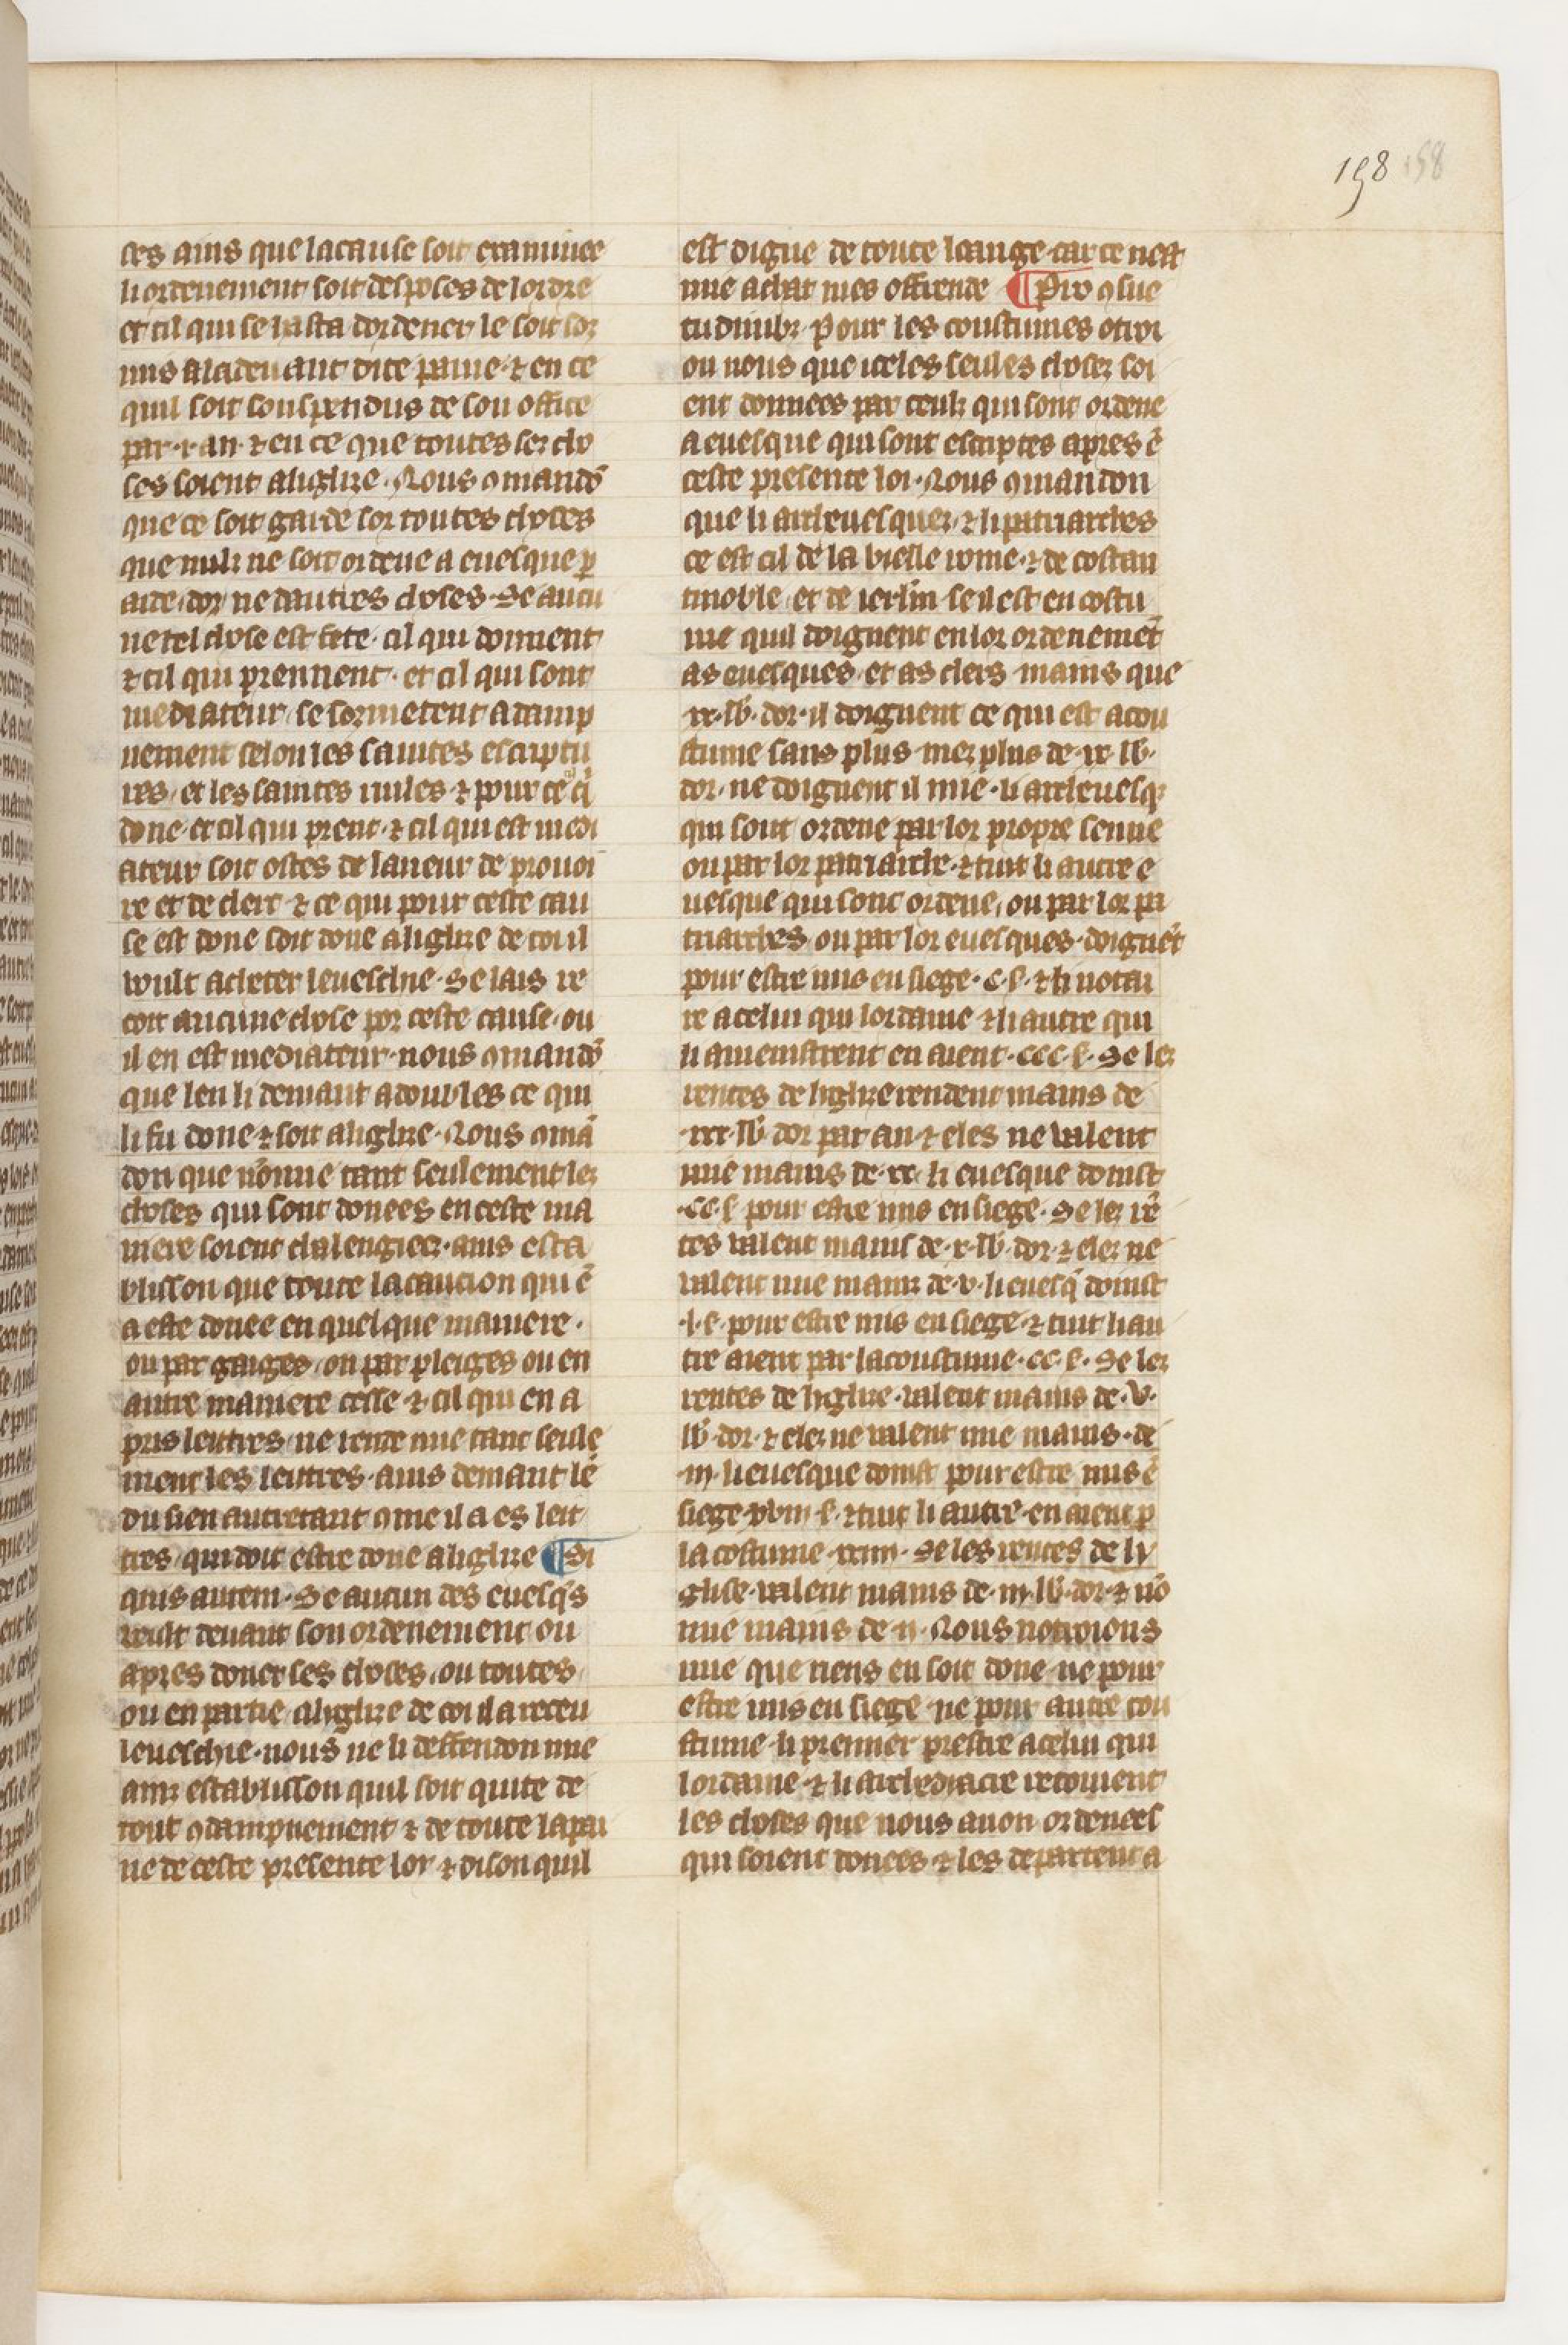 198 158
ces ains que lacause soit examinee
li ordenement soit despoles de lordre
et cil qui se hasta dordener le soit sor
mis a la deuant dite paine ⁊ en ce
quil soit souspendus de son office
par .i. an. ⁊ en ce que toutes sez cho
ses soient a liglize. Nous ꝯmandõ
que ce soit garde sor toutes choses
que nulz ne soit ordene a euesque ꝑ
aide dor ne dautres choses. Se aucu
ne tel chose est fete. cil qui donnent
⁊ cil qui prennent. et cil qui sont
mediateur se sozmetent a damp
nement selon les saintes escriptu
res. et les saintes riules ⁊ pour ce cil q̃
done. et cil qui prent. ⁊ cil qui est medi
ateur soit ostes de laneur de prouoi
re et de clerc ⁊ ce qui pour ceste cau
se est done soit done a liglize de coi il
voult acheter leueschie. Se lais re
coit aucune chose por ceste cause. ou
il en est mediateur. nous ꝯmandõ
que len li demant a doubles ce qui
li fu done ⁊ soit a liglize. Nous ꝯmã
don que nõ mie tant seulement lez
choses qui sont donees en ceste ma
niere soient chalengiez. ains esta
blisson que toute la caucion qui ẽ
a este donee en quelque maniere.
ou par gaiges. ou par pleiges ou en
autre maniere cesse ⁊ cil qui en a
pris lettres. ne rende mie tant seule
ment les lettres. ains demant lẽ
du sien autretant ꝯme il a es lett
res. qui doit estre done a liglize ¶ Si
quis autem. Se aucun des euesq̃s
veult deuant son ordenement ou
apres doner ses choses. ou toutes
ou en partie a liglize de coi il a receu
leueschie. nous ne li deffendon mie
ainz establisson quil soit quite de
tout ꝯdampnement ⁊ de toute la pai
ne de ceste presente loy ⁊ dison quil
est digne de toute loange. car ce nest
mie achat mes offrende ¶ Pro ꝯsue
tudinibz. Pour les coustumes otroi
on nous que iceles seules chosez soi
ent donnees par ceulz qui sont ordene
a euesque qui sont escriptes apres ẽ
ceste presente loi. Nous ꝯmandon
que li archeuesquez. ⁊ li patriarches
ce est cil de la vielle rome. ⁊ de costan
tinoble. et de ierlm̃ se il est en costu
me quil doignent en lor ordenemẽt
as euesques. et as clers mains que
.xx. lb̃. dor. il doignent ce qui est acou
stume sans plus. mez plus de .xx. lb̃.
dor. ne doignent il mie. li archeuesq̃
qui sont ordene par lor propre senne
ou par lor patriarche. ⁊ tuit li autre e
uesque qui sont ordene. ou par lor pa
triarches. ou par lor euesques. doignẽt
pour estre mis en siege. c. s. ⁊ li notai
re a celui qui lordaine ⁊ li autre qui
li amenistrent en aient. ccc. s. Se lez
rentes de liglize rendent mains de
.xxx. lb̃ dor par an ⁊ eles ne valent
mie mains de .xx. li euesque doinst
.cc. s. pour estre mis en siege. Se lez rẽ
tes valent mains de .x. lb̃. dor. ⁊ elez ne
valent mie mainz de .v. li euesq̃ doinst
.l. s. pour estre mis en siege. ⁊ tuit li au
tre aient par la coustume. cc. s. Se lez
rentes de liglize. valent mains de .v.
lb̃. dor. ⁊ elez ne valent mie mains. de
.iij. li euesque doinst pour estre mis ẽ
siege .xviij. s. ⁊ tuit li autre. en aient ꝑ
la costume .xxiiij. Se les rentes de ly
glise. valent mains de .iij. lb̃. dor. ⁊ nõ
mie mains de .ij. Nous notroions
mie que riens en soit done ne pour
estre mis en siege ne pour autre cou
stume. li premier prestre a celui qui
lordaine. ⁊ li archediacre recoiuent
les choses que nous auon ordenees
qui soient donees ⁊ les departent a